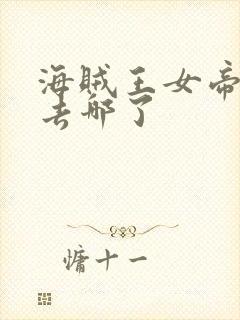 海贼王女帝
去哪了
慵十一